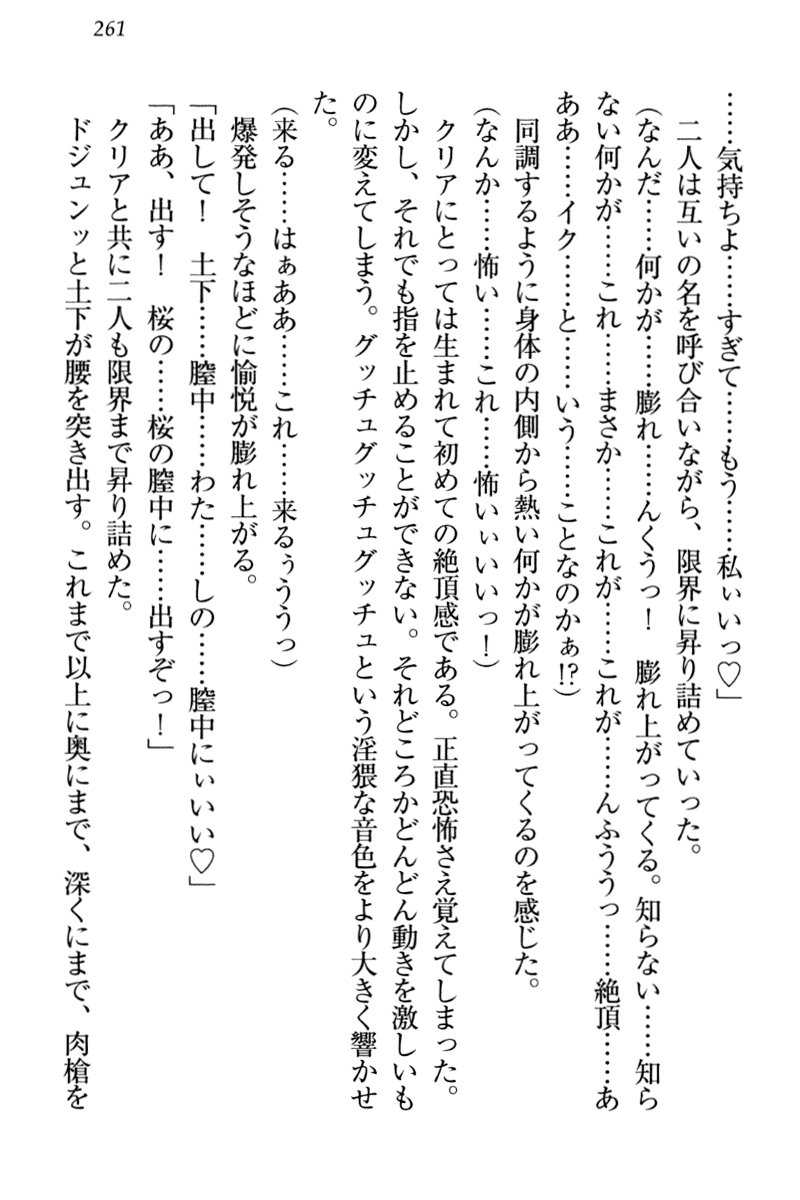 261
……気持ちよ……すぎて……もう……私ぃいっ♡」
　二人は互いの名を呼び合いながら、限界に昇り詰めていった。
（なんだ……何かが……膨れ……んくうっ！　膨れ上がってくる。知らない……知ら
ない何かが……これ……まさか……これが……これが……んふううっ……絶頂……あ
ああ……イク……と……いう……ことなのかぁ!?）
　同調するように身体の内側から熱い何かが膨れ上がってくるのを感じた。
（なんか……怖い……これ……怖いぃいいっ！）
　クリアにとっては生まれて初めての絶頂感である。正直恐怖さえ覚えてしまった。
しかし、それでも指を止めることができない。それどころかどんどん動きを激しいも
のに変えてしまう。グッチュグッチュグッチュという淫猥な音色をより大きく響かせ
た。
（来る……はぁああ……これ……来るぅううっ）
　爆発しそうなほどに愉悦が膨れ上がる。
「出して！　土下……膣中……わた……しの……膣中にぃいい♡」
「ああ、出す！　桜の……桜の膣中に……出すぞっ！」
　クリアと共に二人も限界まで昇り詰めた。
　ドジュンッと土下が腰を突き出す。これまで以上に奥にまで、深くにまで、肉槍を